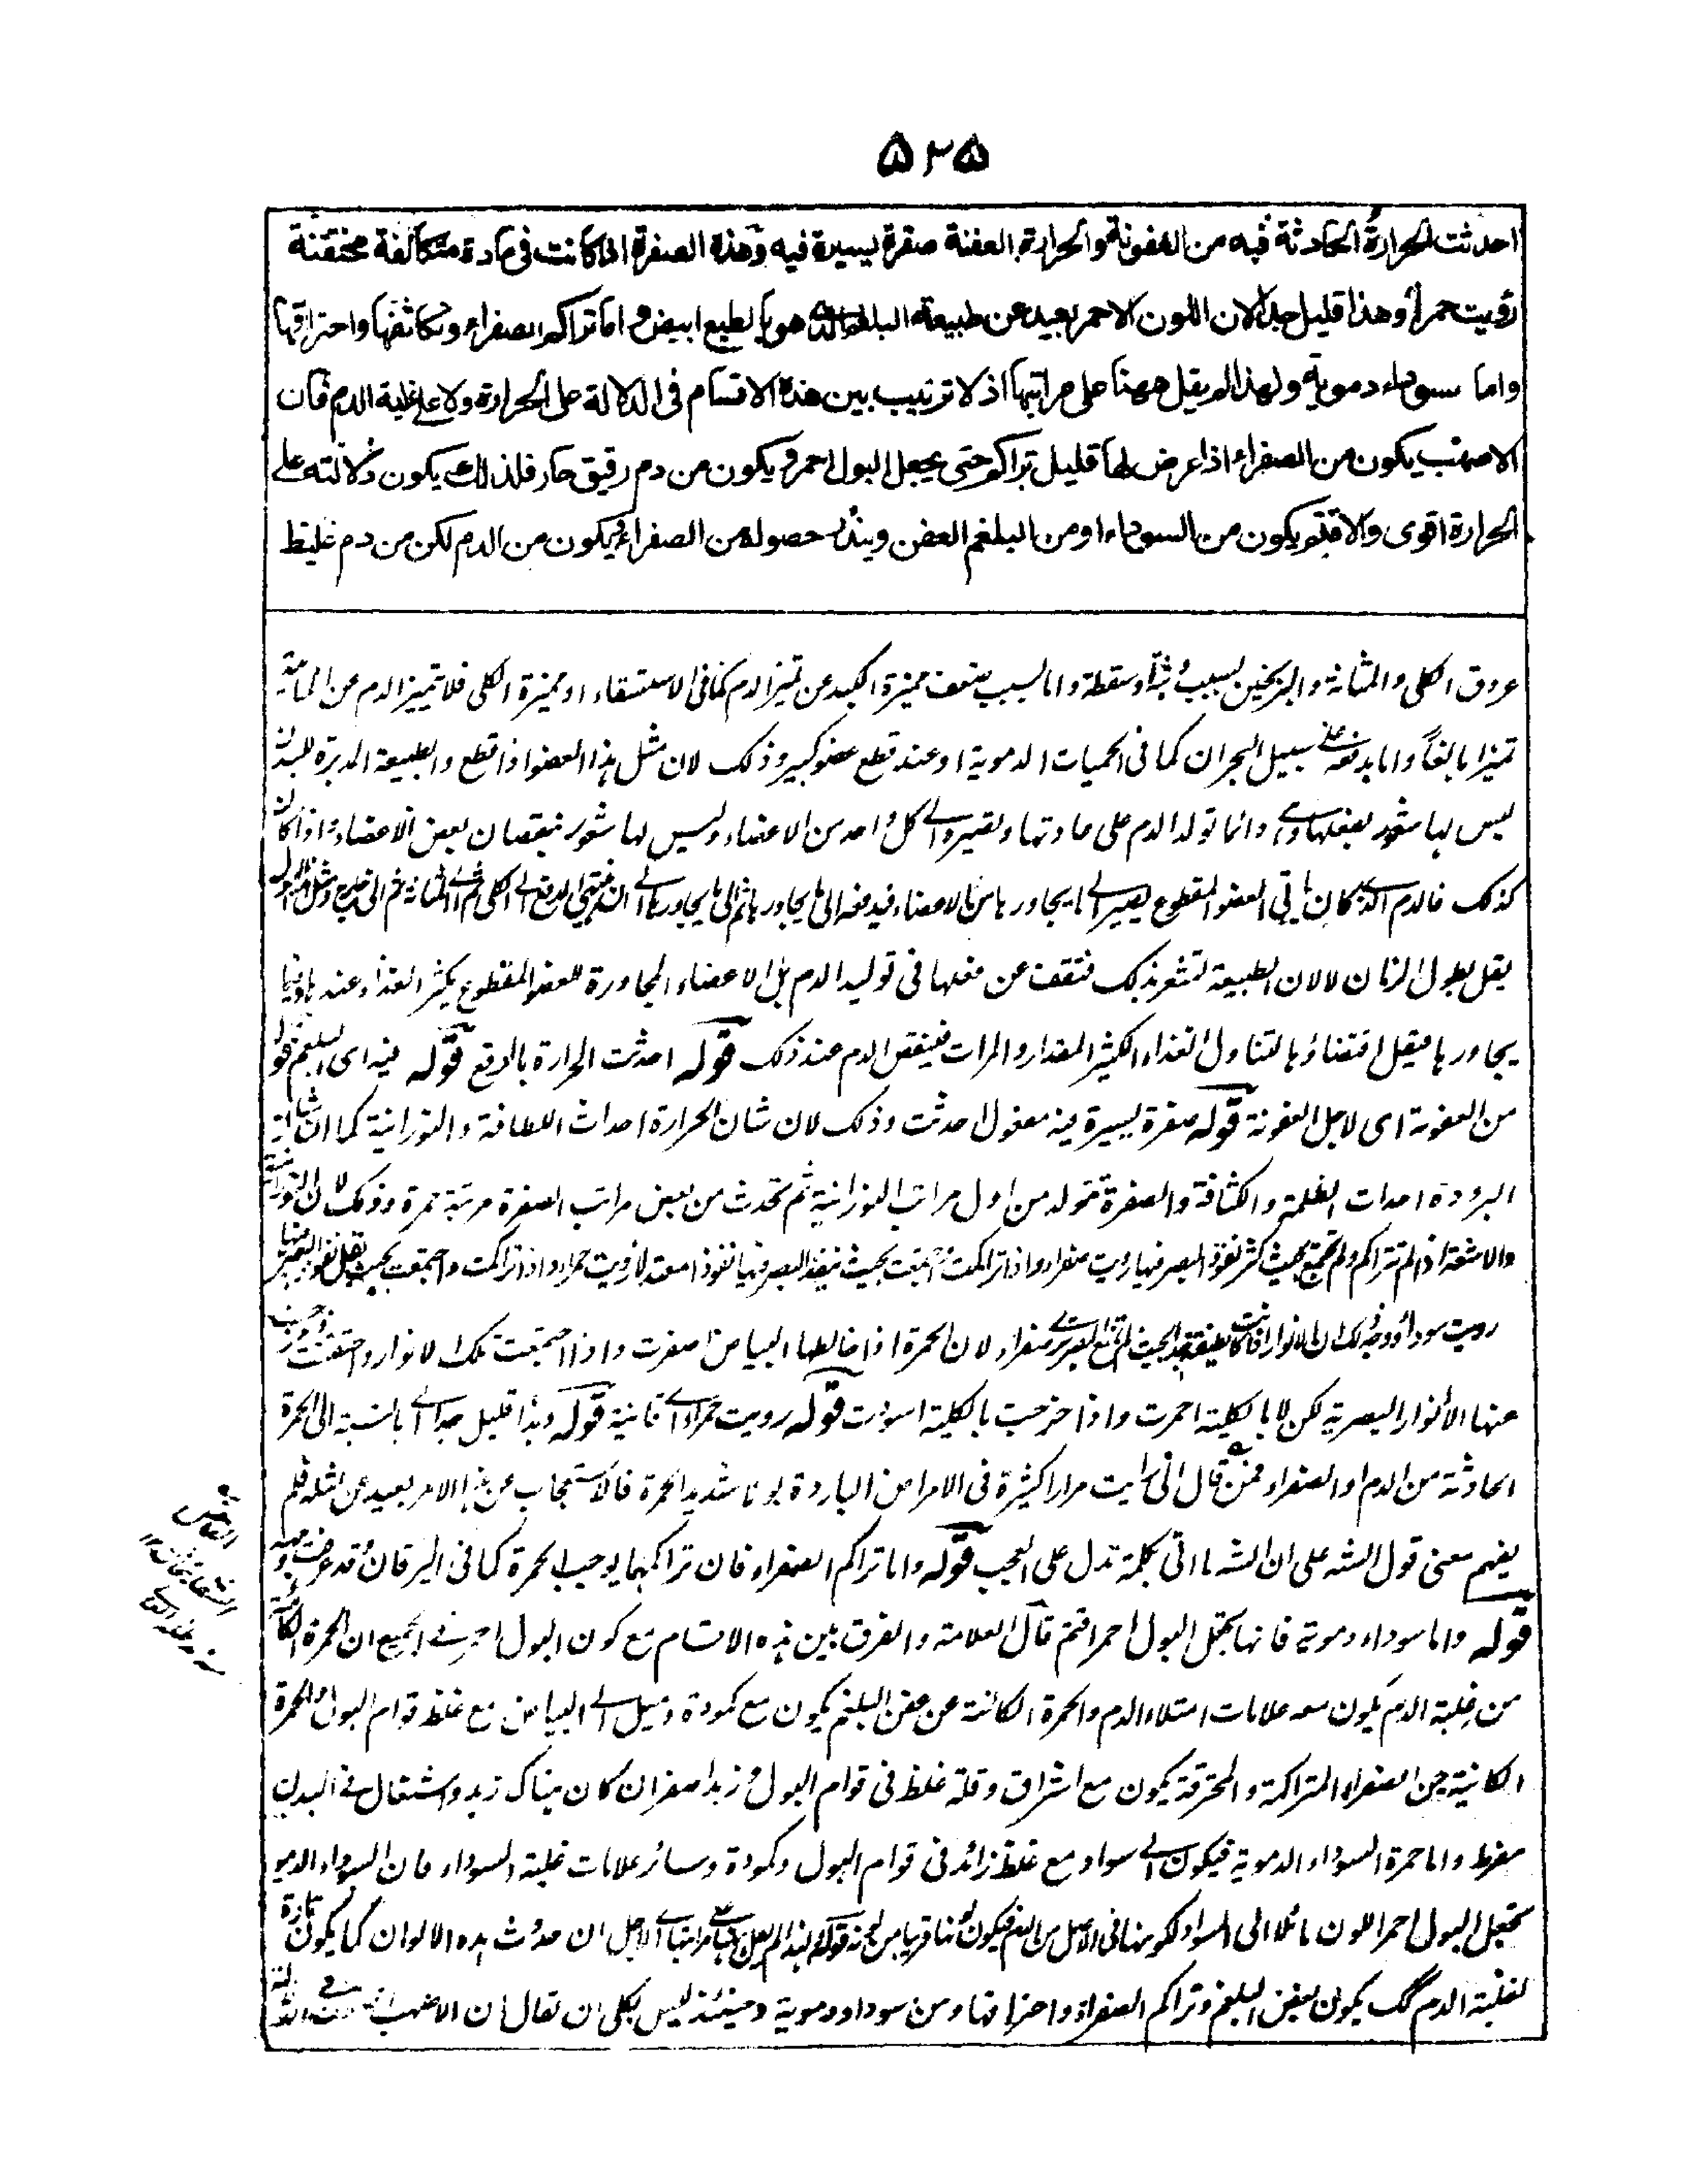 ۵۲۵
احدثت الحرارة الحادثة فيه من العفونة والحرارة العفنة صفرة يسيرة فيه وهذه الصفرة اذا كانت فى مادة متكاثفة محتقنة
رؤيت حمراء وهذا قليل جدا لان اللون الاحمر بعيد عن طبيعة البلغم الذى هو بالطبع ابيض واما تراكم الصفراء وتكاثفها واحتراقها
واما سوداء دموية ولهذا لم يقل ههنا على مراتبها اذ لا ترتيب بين هذه الاقسام فى الدلالة على الحرارة ولا على غلبة الدم فان
الاصهب يكون من الصفراء اذا عرض لها قليل تراكم حتى يجعل البول احمر ويكون من دم رقيق حار فلذلك يكون دلالته على
الحرارة اقوى والاقتم يكون من السوداء او من البلغم العفن ويندر حصوله من الصفراء ويكون من الدم لكن من دم غليظ
عروق الكلى والمثانة والبربخين بسبب وثبة او سقطة واما لسبب ضعف مميزة الكبد عن تميز الدم كما فى الاستسقاء او مميزة الكلى فلا تميز الدم عن المائية
تميزا بالغا واما بدفعه على سبيل البحران كما فى الحميات الدموية او عند قطع عضو كبير وذلك لان مثل هذا العضو اذا قطع والطبيعة المدبرة للبدن
ليس لها شعور بفعلها دائما تولد الدم على عادتها وتفيره الى كل واحد من الاعضاء وليس لها شعور بنقصان بعض الاعضاء واذا كان
كذلك فالدم الذى كان ياتى العضو المقطوع يصير الى ما يجاورها من الاعضاء فيدفعه الى ما يجاورها ثم الى ما يجاورها الى ان ينتهى الدفع الى الكلى ثم الى المثانة ثم الى خارج ومثل هذا البول
يقل بطول الزمان لا لان الطبيعة تشعر بذلك فتقف عن فعلها فى توليد الدم بل الاعضاء المجاورة للعضو المقطوع يكثر الغذاء عندها وفيما
يجاورها فيقل اقتضاؤها لتناول الغذاء الكثير المقدار والمرات فينقص الدم عند ذلك قوله احدثت الحرارة بالرفع قوله فيه اى البلغم قوله
من العفونة اى لاجل العفونة قوله صفرة يسيرة فيه مفعول احدثت وذلك لان شان الحرارة احداث اللطافة والنورانية كما ان شان
البرودة احداث الظلمة والكثافة والصفرة تتولد من اول مراتب النورانية ثم تحدث من بعض مراتب الصفرة مرتبة حمرة وذلك لان النورانية
والاشعة اذا لم تتراكم ولم تجتمع بحيث كثر نفوذ البصر فيها رؤيت صفراء واذا تراكمت واجتمعت بحيث ينفذ البصر فيها نفوذا معتدلا رؤيت حمراء واذا تراكمت واجتمعت بحيث يقل نفوذ البصر فيها
رؤيت سوداء ووجه ذلك ان الانوار اذا كانت ضعيفة صفراء لان الحمرة اذا خالطها البياض اصفرت واذا اجتمعت تلك الانوار واحتقنت وخرجت
عنها الانوار البصرية لكن لا بالكلية احمرت واذا خرجت بالكلية اسودت قوله رؤيت حمراء اى قانية قوله وهذا قليل جدا اى بالنسبة الى الحمرة
الحادثة من الدم او الصفراء فمن قال انى رايت مرارا كثيرة فى الامراض الباردة بولا شديد الحمرة فالاستعجاب عن هذا الامر بعيد عن مثله فلم
يفهم معنى قول الشه على ان الشه ما اتى بكلمة تدل على العجب قوله واما تراكم الصفراء فان تراكمها يوجب الحمرة كما فى اليرقان وقد عرفت وجهه
قوله واما سوداء دموية فانها تجعل البول احمر اقتم قال العلامة والفرق بين هذه الاقسام مع كون البول احمر فى الجميع ان الحمرة الكائنة
من غلبة الدم يكون معه علامات امتلاء الدم والحمرة الكائنة عن عفن البلغم يكون مع كمودة وميل الى البياض مع غلظ قوام البول والحمرة
الكائنة من الصفراء المتراكمة والمحترقة يكون مع اشراق وقلة غلظ فى قوام البول وزبد اصفر ان كان هناك زبد واشتعال فى البدن
مفرط واما حمرة السوداء الدموية فيكون الى سواد مع غلظ زائد فى قوام البول وكمودة وسائر علامات غلبة السوداء فان السوداء الدموية
تجعل البول احمر اللون مائلا الى السواد لكونها فى الاصل من الدم فيكون لونها قريبا من لونه قوله ولهذا لم يقل على مراتبها اى لاجل ان حدوث هذه الالوان كما يكون تارة
لغلبة الدم كك يكون لعفن البلغم وتراكم الصفراء واحتراقها ومن سوداء دموية وحينئذ ليس لكل ان يقال ان الاصهب